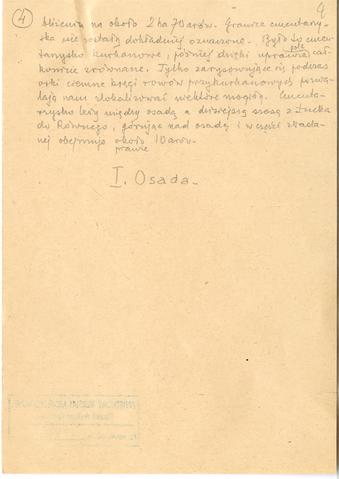 4
4
bliżeniu na około 2 ha 70 arów. Granice cmentarzy-
ska nie zostały dokładniej oznaczone. Było to cmen-
tarzysko kurhanowe, później dzięki uprawie pól cał-
kowicie zrównane. Tylko zarysowujące się podczas
orki ciemne kręgi rowów przykurhanowych pozwa-
lają nam zlokalizować niektóre mogiły. Cmenta-
rzysko leży między osadą a dzisiejszą szosą z Łucka
do Równego, górując nad osadą i w części zbada-
nej obejmuje około 10 arów.
prawie
I. Osada.